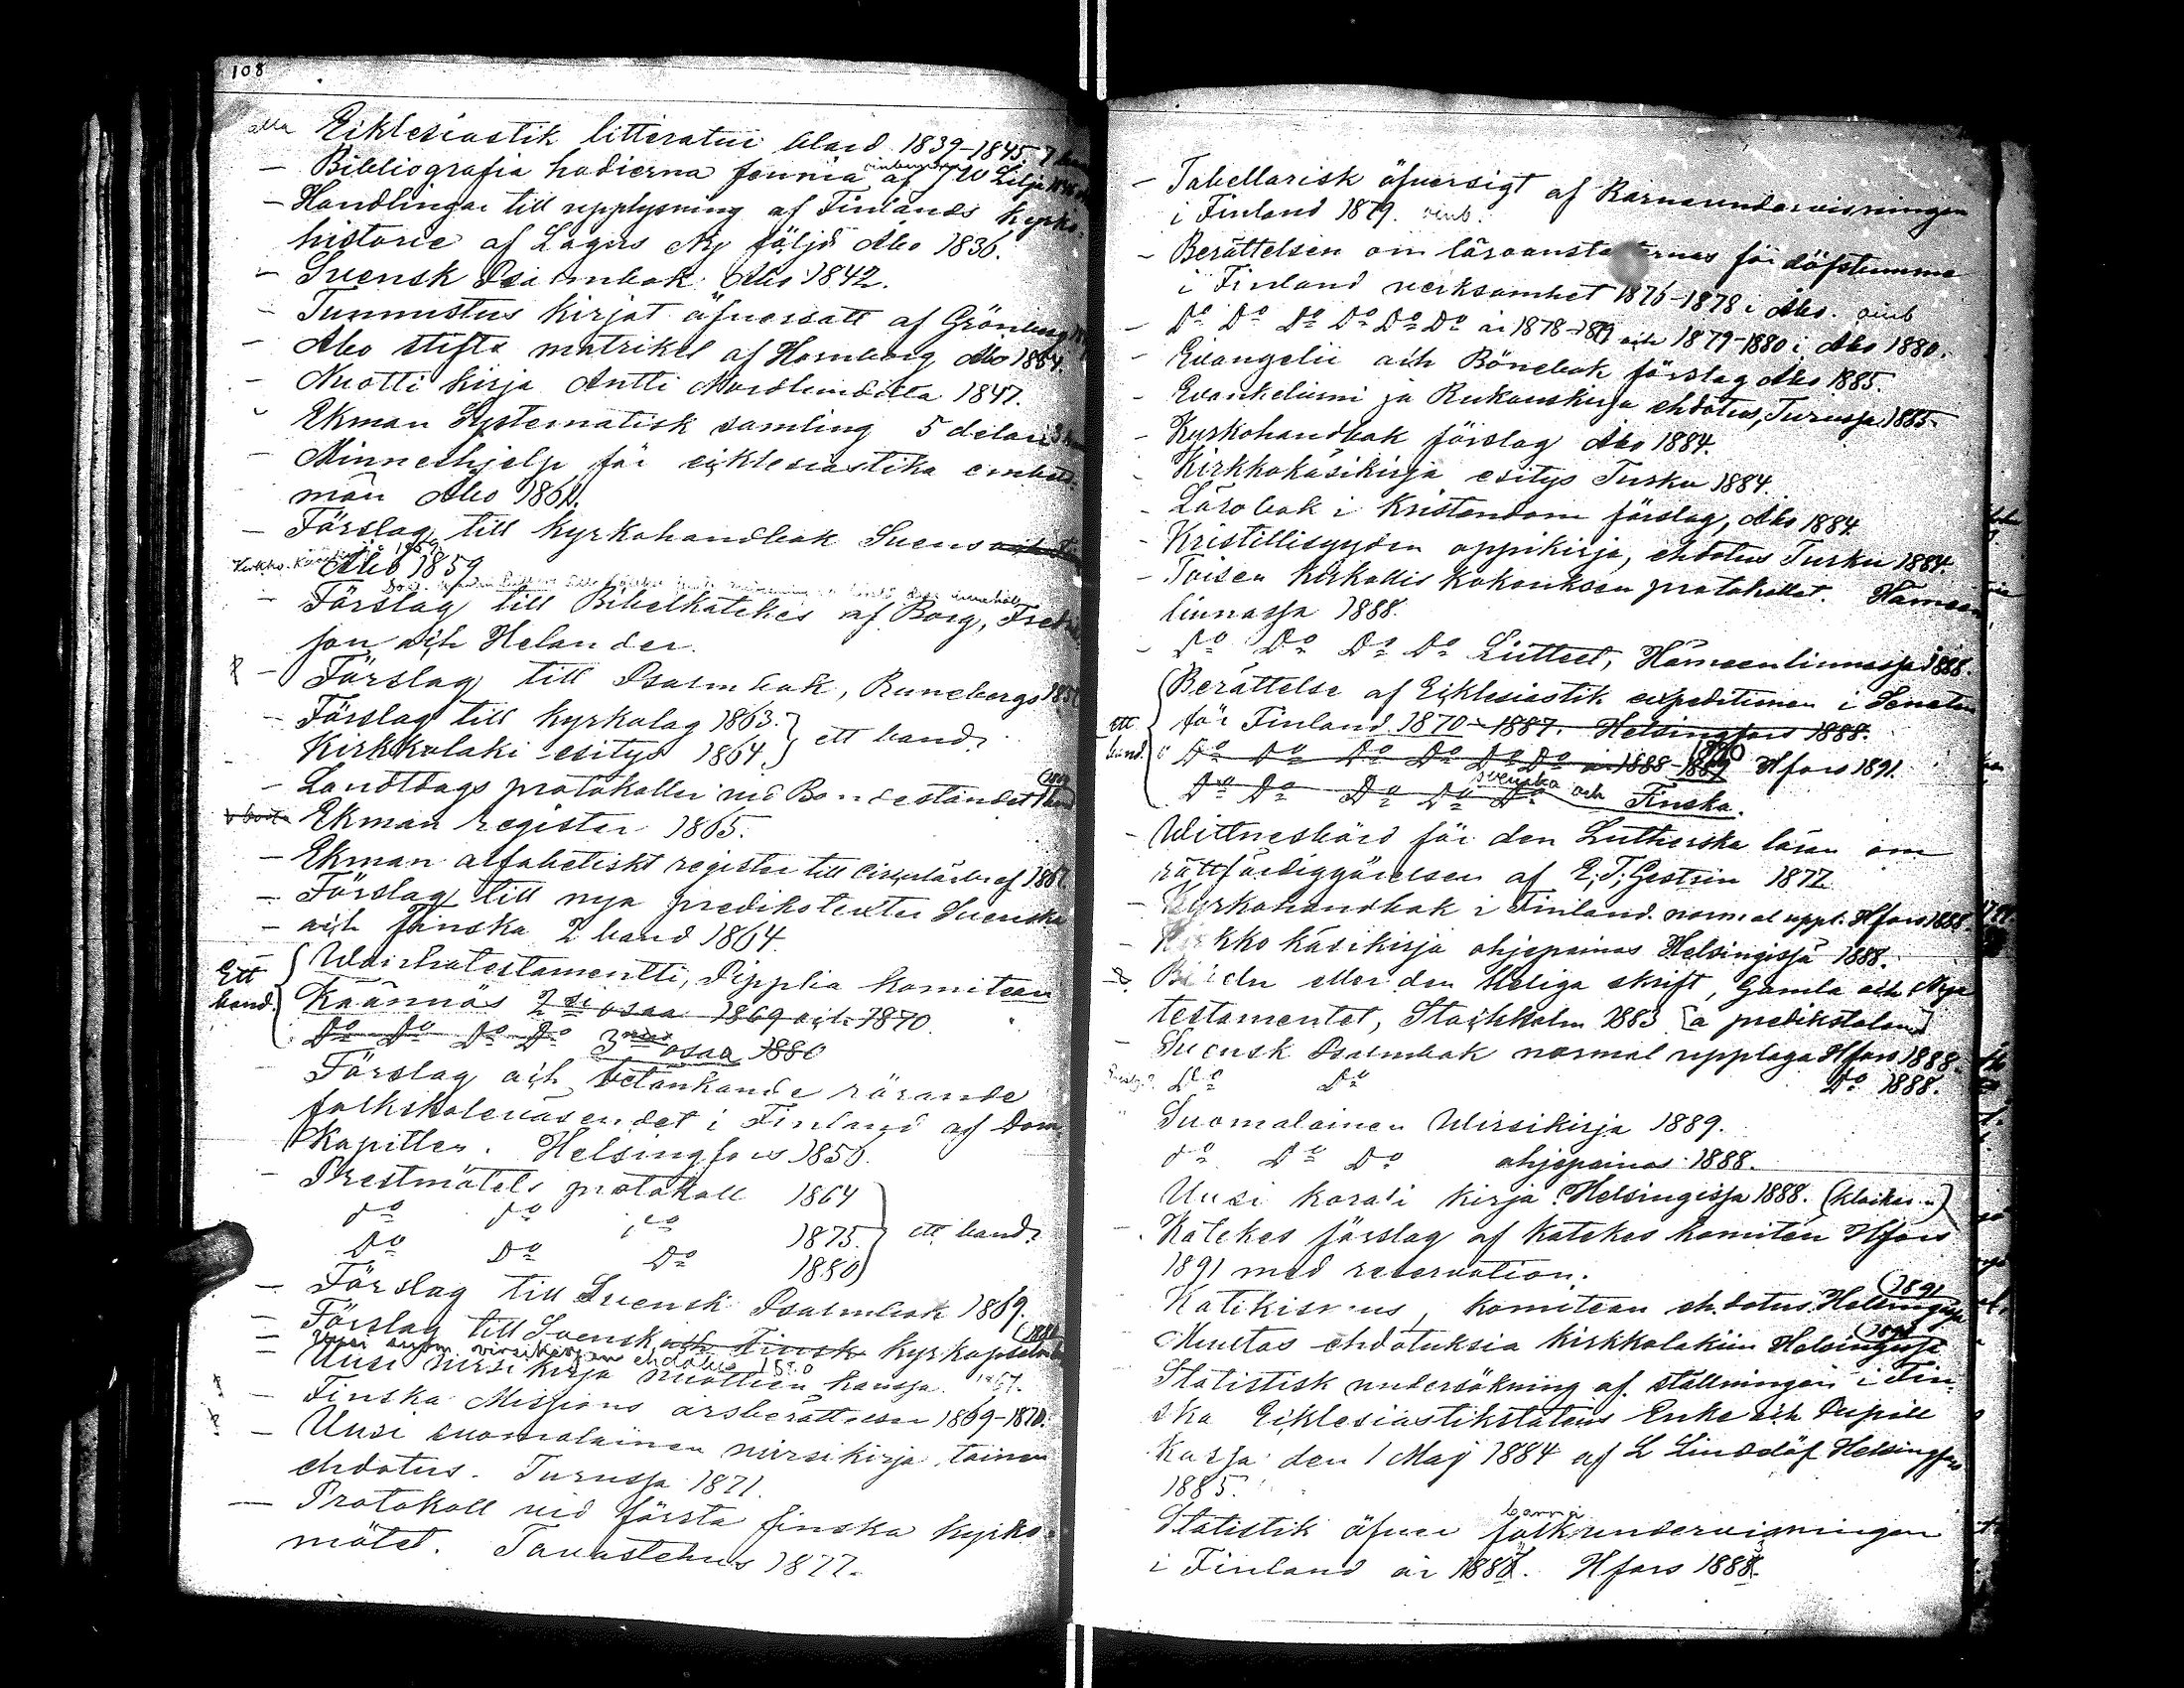 108
alla Ecklesiastik litteratur bland 1839-1845. 7 band
- Bibliografia hodierna fennia af J W Lilja
- Handlingar till upplysning af Finlands kyrko-
historie af Lagus Ny följd Åbo 1836.
- Svensk Psalmbok Åbo 1842.
- Tunnustus kirjat öfversatt af Grönberg
- Åbo stifts matrikel af Hornborg Åbo 1864.
- Nuotti kirja Antti Nordlundilta 1847.
- Ekman Systematisk samling 5 delar i 3
- Minneshjelp för ecklesiastika embets-
män Åbo 1861.
- Förslag till kyrkohandbok Svensk
Åbo 1859
- Förslag till Bibelkatekes af Borg, Fredrik-
son och Helander.
- Förslag till Psalmbok, Runebergs 1857
- Förslag till kyrkolag 1863.
Kirkkolaki esitys 1864. } ett band.
- Landtdags protokoller ved Bondeståndet
Ekman register 1865.
- Ekman alfabetiskt register till cirkulärler af 1867.
- Förslag till nya predikotexter Svenska
- och finska 2 band 1864.
Ett band. { Wanhatestamentti, Pipplia komitean
Käännös 2si osaa 1869 och 1870.
Do Do Do Do 3mas osaa 1880
- Förslag och betänkande rörande
folkskoleväsendet i Finland af Dom
Kapitlen. Helsingfors 1858.
- Prestmötets protokoll 1864
do do do 1875.
Do Do Do 1880 } ett band.
- Förslag till Svensk Psalmbok 1869.
- Förslag till Svensk och Finsk kyrkopsalm
Uusi suom. virsikirjan ehdotus 1880
- Uusi virsi kirja nuottien kanssa
- Finska Missions årsberättelsen 1869-1870.
- Uusi suomalainen virsikirja toinen
ehdotus. Turussa 1871.
- Protokoll vid första finska kyrko-
mötet. Tavastehus 1877.
- Tabellarisk öfversigt af Barnaundervisningen
i Finland 1879. oinb.
- Berättelsen om läroanstalternas för döfstumma
i Finland verksamhet 1876-1878 i Åbo. oinb
- Do Do Do Do Do Do år 1878-1879 och 1879-1880 i Åbo 1880.
- Evangelii och Bönebok förslag Åbo 1885.
- Evankeliumi ja Rukouskirja ehdotus, Turussa 1885.
- Kyrkohandbok förslag Åbo 1884.
- Kirkkokäsikirja esitys Turku 1884.
- Lärobok i Kristendom förslag, Åbo 1884.
- Kristillisyyden oppikirja, ehdotus Turku 1884.
- Toisen kirkollis kokouksen protokollat. Hämeen
linnassa 1888.
- Do Do Do Do Liitteet, Hämeenlinnassa 1888.
ett band. { Berättelse af Ecklesiastik expeditionen i Senaten
för Finland 1870-1887. Helsingfors 1888.
Do Do Do Do Do Do år 1888-1889 1890 Hfors 1891.
Do Do Do Do Do svenska och Finska.
- Wittnesbörd för den Lutherska läran om
rättfärdiggörelsen af E. T. Gestrin 1872
- Kyrkohandbok i Finland. normal uppl. Hfors 1888.
- Kirkko käsikirja ohjepainos Helsingissä 1888.
Bibeln eller den Heliga skrift, Gamla och Nya
testamentet, Stockholm 1883 [å predikstolen]
- Svensk Psalmbok normal upplaga Hfors 1888.
Do Do Do 1888.
Suomalainen Wirsikirja 1889.
do Do Do ohjepainos 1888.
Uusi koraali kirja. Helsingissä 1888.
- Katekes förslag af Katekes komitén Hfors
1891 med reservation.
Katekismus, komitean ehdotus. Helsingissä (1891
Muutos ehdotuksia kirkkolakiin Helsingissä
Statistisk undersökning af ställningen i Fin-
ska Ecklesiastikstatens Enke och Pupill
Kassa den 1 Maj 1884 af L Lindelöf Helsingfors
1885.
Statistik öfver folk barna undervisningen
i Finland år 1887. Hfors 1888.